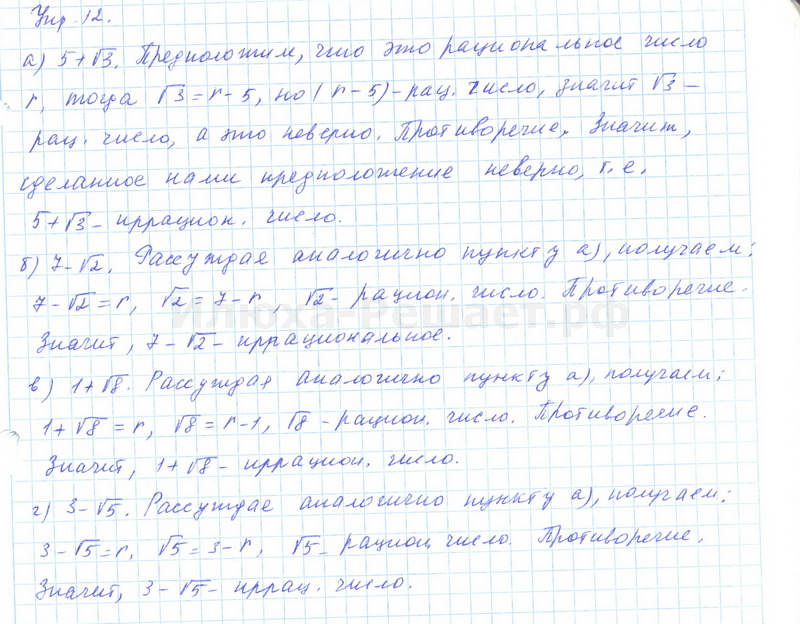 Упр. 12.
а) 5+√3. Предположим, что это рациональное число
r, тогда √3 = r-5, но (r-5) - рац. число, значит √3 -
рац. число, а это неверно. Противоречие. Значит,
сделанное нами предположение неверно, т.е.
5+√3 - иррацион. число.
б) 7-√2. Рассуждая аналогично пункту а), получаем:
7-√2 = r, √2 = 7-r, √2 - рацион. число. Противоречие.
Илюха-Решает.рф
Значит, 7-√2 - иррациональное.
в) 1+√8. Рассуждая аналогично пункту а), получаем:
1+√8 = r, √8 = r-1, √8 - рацион. число. Противоречие.
Значит, 1+√8 - иррацион. число.
г) 3-√5. Рассуждае аналогично пункту а), получаем:
3-√5 = r, √5 = 3-r, √5 - рацион. число. Противоречие.
Значит, 3-√5 - иррац. число.